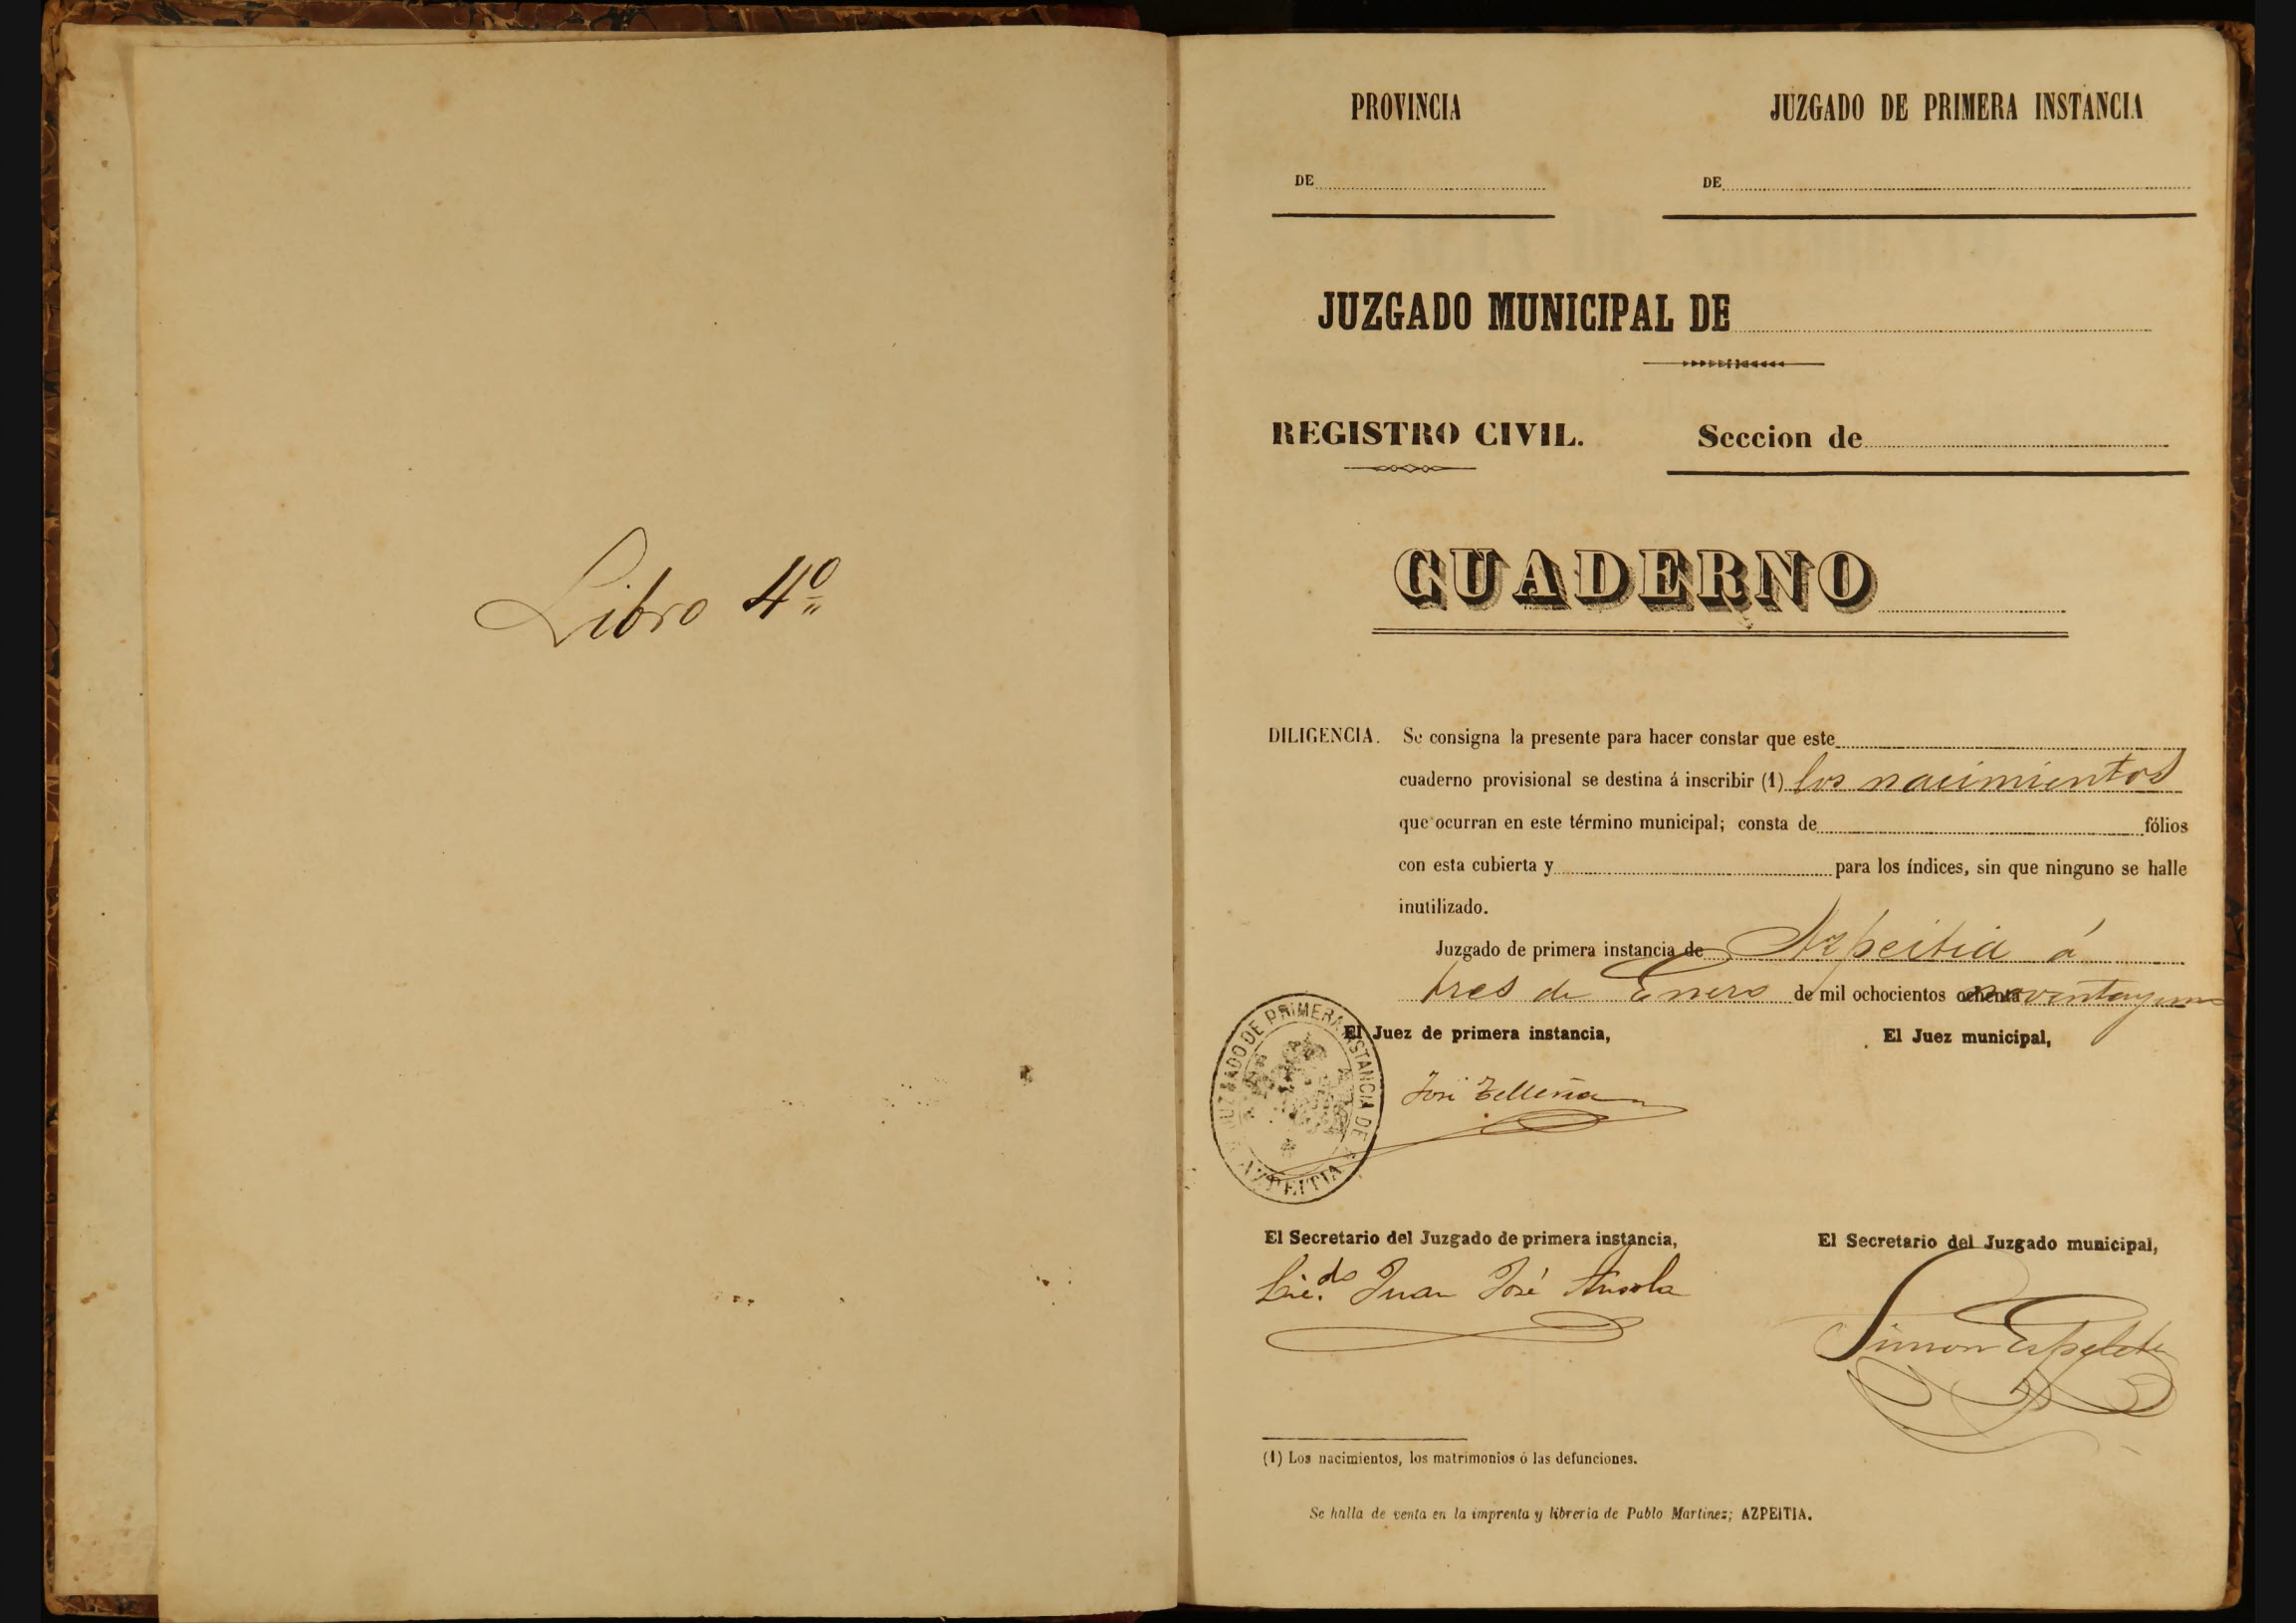 Libro 4º
PROVINCIA
JUZGADO DE PRIMERA INSTANCIA
DE
DE
JUZGADO MUNICIPAL DE
REGISTRO CIVIL.
Seccion de
CUADERNO
DILIGENCIA. Se consigna la presente para hacer constar que este
cuaderno provisional se destina á inscribir (1) los nacimientos
que ocurran en este término municipal; consta de fólios
con esta cubierta y para los índices, sin que ninguno se halle
inutilizado.
Juzgado de primera instancia de Azpeitia á
tres de Enero de mil ochocientos ochenta noventa y uno
El Juez de primera instancia,
El Juez municipal,
JUZGADO DE PRIMERA INSTANCIA DE AZPEITIA
José
El Secretario del Juzgado de primera instancia,
El Secretario del Juzgado municipal,
Licdo. Juan José
Simon Espeleta
(1) Los nacimientos, los matrimonios ó las defunciones.
Se halla de venta en la imprenta y librería de Pablo Martinez; AZPEITIA.